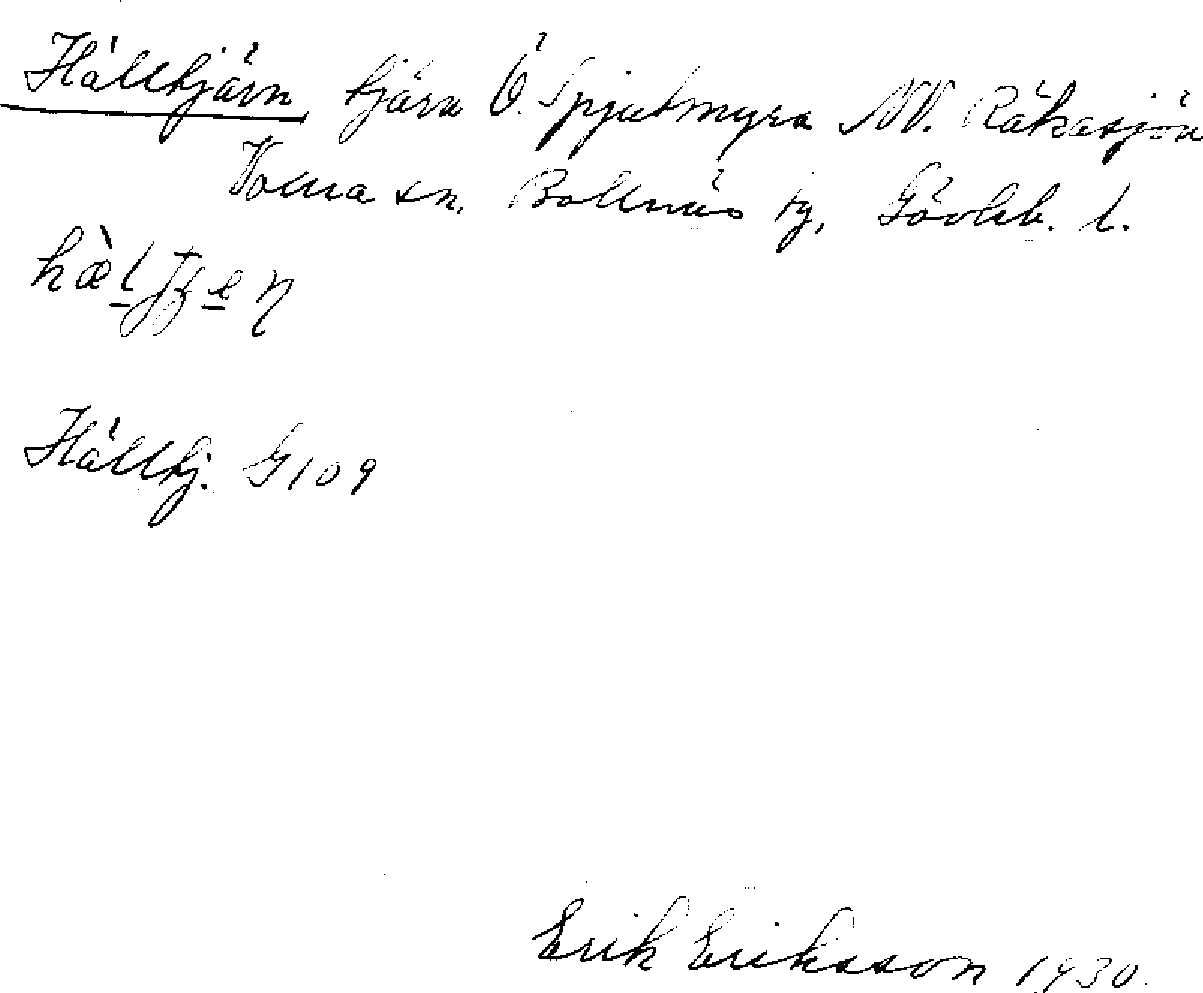 Hälltjärn, tjärn Ö. Spjutmyra NV. Råkasjön
Voxna sn. Bollnäs tg, Gävleb. l.
Hälltj. G109
Erik Eriksson 1930.